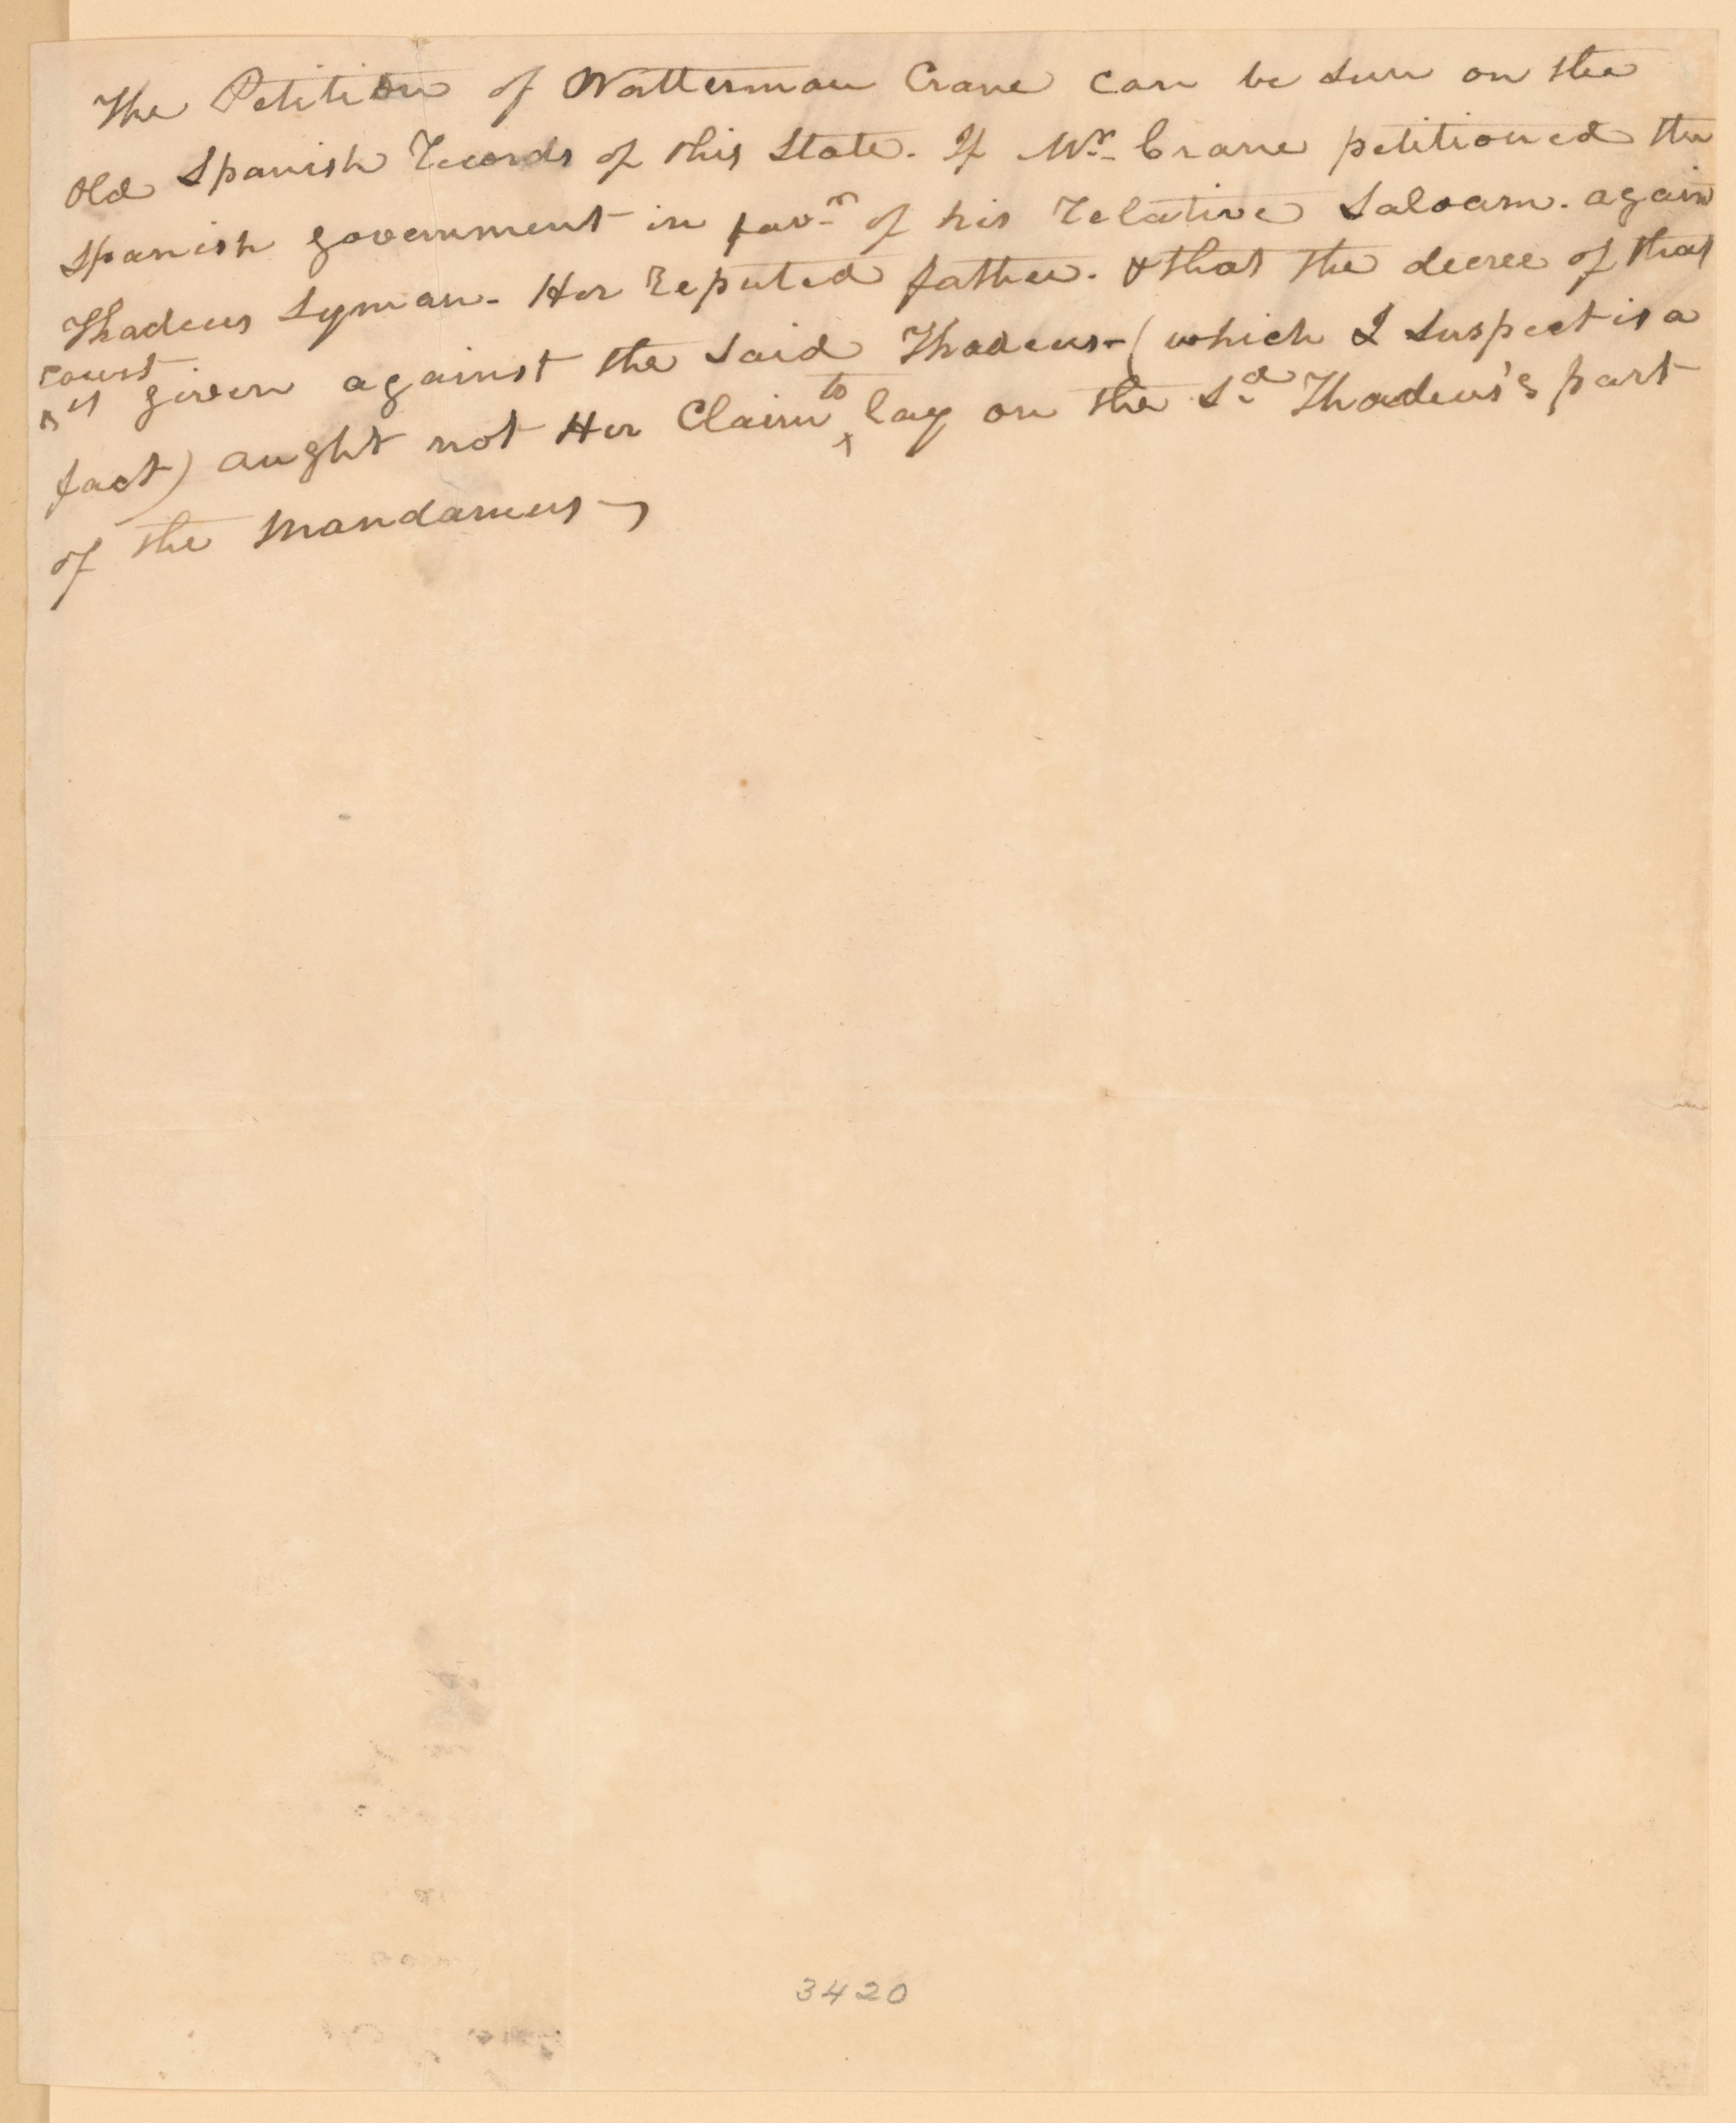 The Petition of Watterman Crane can be seen on the
Old Spanish Records of this State. If Mr. Crane petitioned the
Spanish government in favr of his Relative Saloam. again
Thadeus Lyman. Her Reputed father. & that the decree of that
Court
given against the said Thadeus (which I suspect is a
fact) aught not Her Claim to lay on the Sd Thadeus's part
of the Mandamus
3420